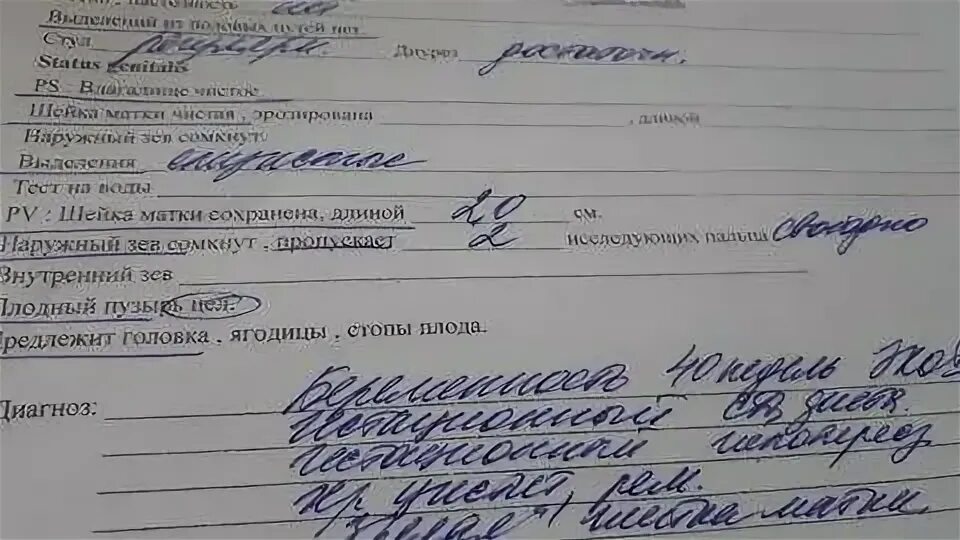 Выделений из половых путей нет
Стул регулярн. Диурез достаточн.
Status genitalis
PS : Влагалище чистое
Шейка матки чистая , эрозирована , длиной
Наружный зев сомкнут
Выделения слизистые
Тест на воды
PV : Шейка матки сохранена, длиной 20 см.
Наружный зев сомкнут , пропускает 2 исследующих пальца свободно
Внутренний зев
Плодный пузырь цел.
Предлежит головка , ягодицы , стопы плода.
Диагноз: Беременность 40 недель
гестационный
гестационный
хр. цистит, рем.
шейка матки